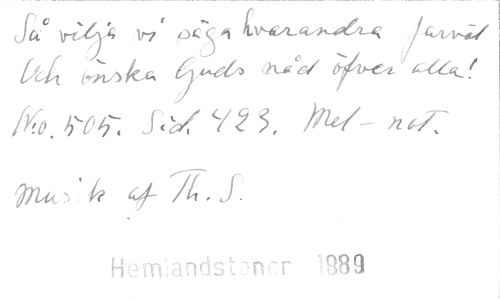 Så vilja vi säga hvarandra farväl
Och önska Guds nåd öfver alla!
No. 505. Sid. 423. Mel-not.
Musik af Th. S.
Hemlandstoner 1889